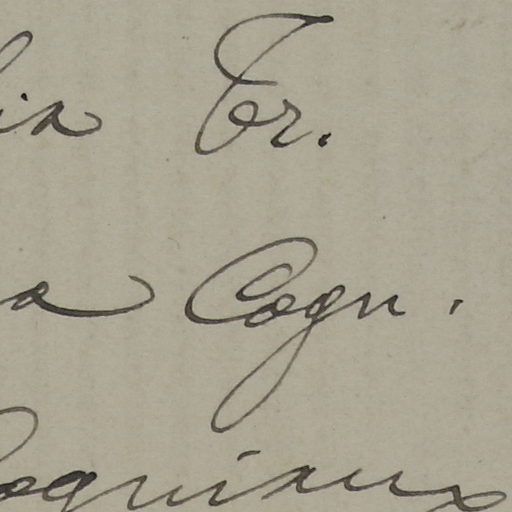 lia Tr.
a Cogn.
Cogniaux